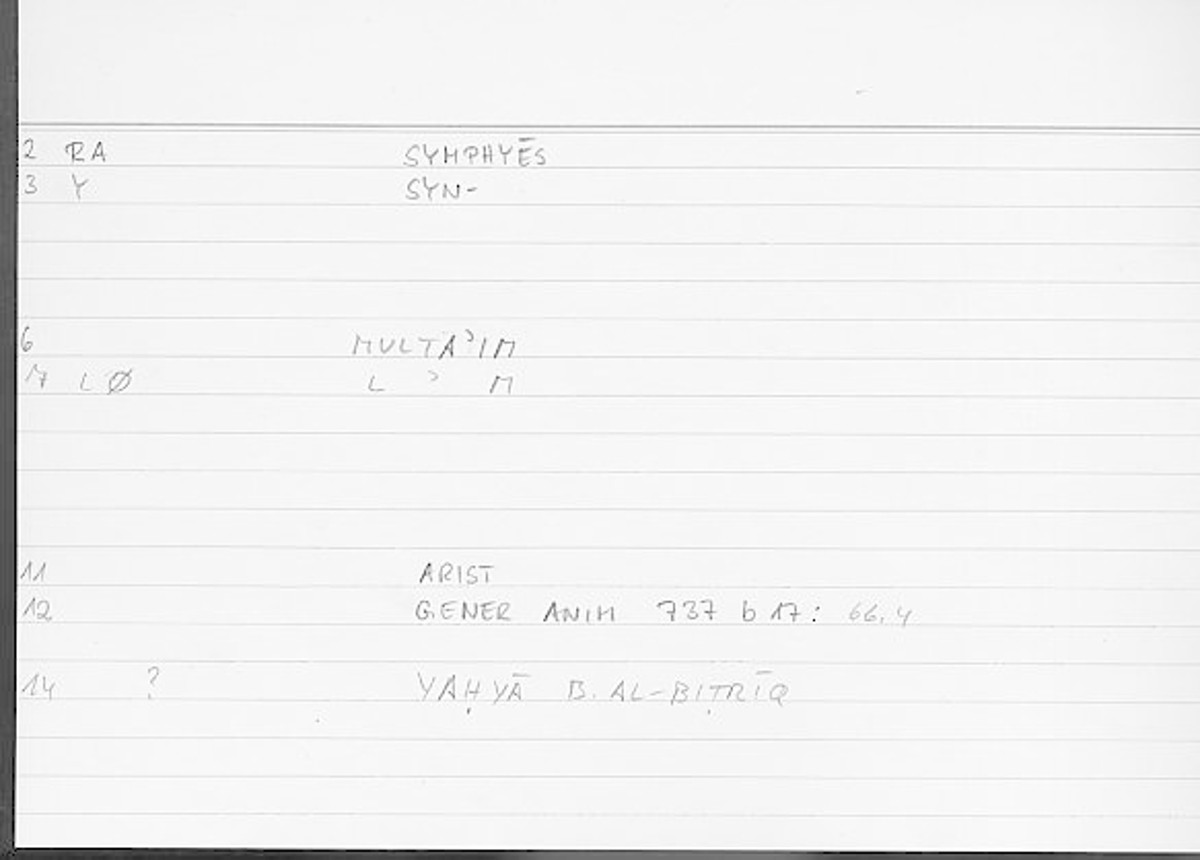 2 RA SYMPHYĒS
3 Y SYN-
6 MULTAʾIM
7 L Ø L ʾ M
11 ARIST
12 GENER ANIM 737 b 17: 66,4
14 ? YAḤYĀ B. AL-BIṬRĪQ